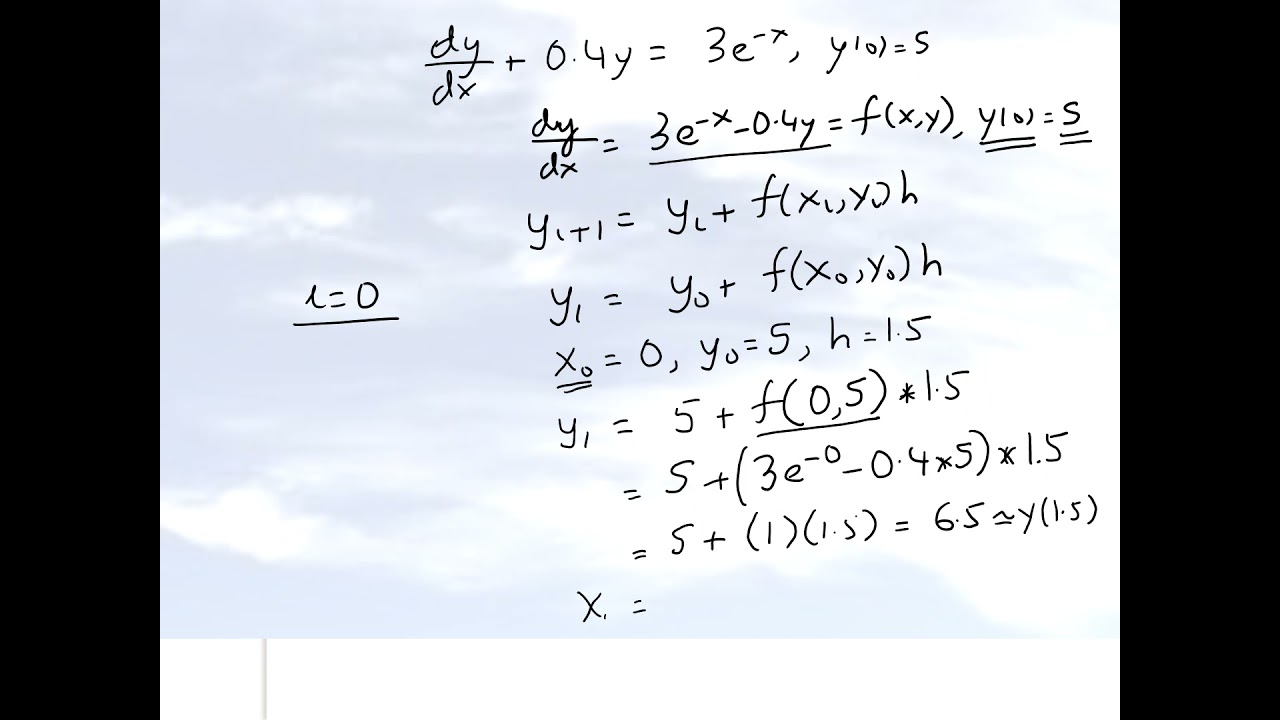 dy/dx + 0.4y = 3e^-x, y(0) = 5
dy/dx = 3e^-x - 0.4y = f(x,y), y(0) = 5
y_i+1 = y_i + f(x_i, y_i) h
i = 0
y_1 = y_0 + f(x_0, y_0) h
x_0 = 0, y_0 = 5, h = 1.5
y_1 = 5 + f(0,5) * 1.5
= 5 + (3e^-0 - 0.4*5) * 1.5
= 5 + (1)(1.5) = 6.5 ≃ y(1.5)
x_1 =